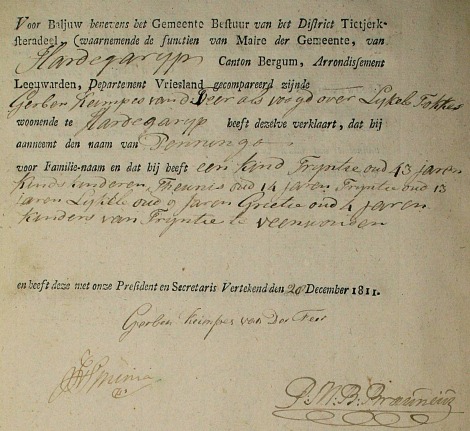 Voor Baljuw benevens het Gemeente Bestuur van het District Tietjerk-
steradeel (waarnemende de functien van Maire der Gemeente, van
Hardegaryp Canton Bergum, Arrondissement
Leeuwarden, Departement Vriesland gecompareerd zijnde
Gerben Keimpes van der Veer als voogd over Lykele Fokkes
woonende te Hardegaryp heeft dezelve verklaart, dat hij
aanneemt den naam van
voor Familie-naam en dat hij heeft een kind Tryntie oud 43 jaren
Kinds kinderen Theunis oud 14 jaren Tryntie oud 13
jaren Lykele oud 9 jaren Grietie oud 4 jaren
kinders van Tryntie te veenwouden
en heeft deze met onze President en Secretaris Vertekend den 20 December 1811.
Gerben Keimpes van Der Feer